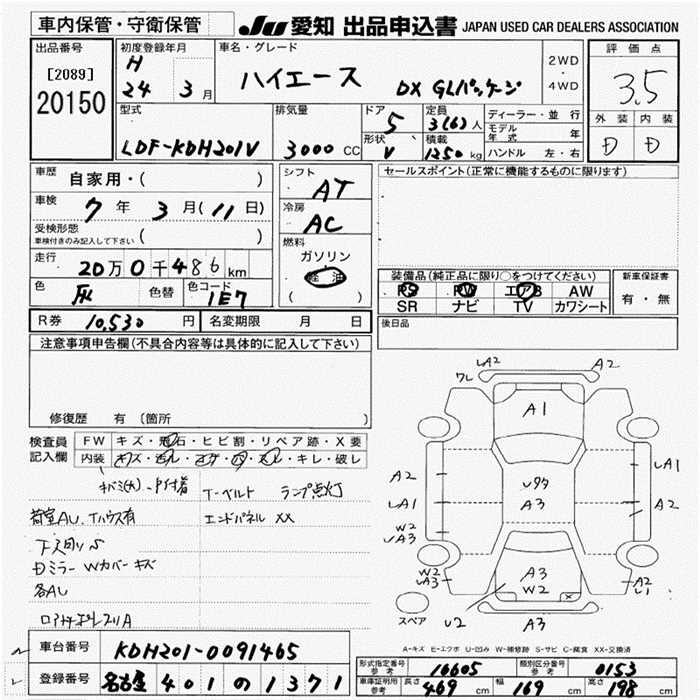 車内保管・守衛保管
JU 愛知 出品申込書 JAPAN USED CAR DEALERS ASSOCIATION
出品番号
[2089]
20150
初度登録年月
H
24 3月
車名・グレード
ハイエース DX GLパッケージ
2WD
・
4WD
評価点
3.5
外装 内装
D D
型式
LDF-KDH201V
排気量
3000 CC
ドア 5
形状 V
定員 3(6)人
積載 1250 kg
ディーラー・並行
モデル年式 年
ハンドル 左・右
車歴 自家用・( )
車検 7年 3月(11日)
受検形態
車検付きのみ記入して下さい ( )
走行 20万0千486km
色 灰 色替 色コード 1E7
シフト AT
冷房 AC
燃料
ガソリン
軽油
( )
セールスポイント(正常に機能するものに限ります)
装備品(純正品に限り○をつけてください)
PS PW エアB AW
SR ナビ TV カワシート
新車保証書
有・無
R券 10,530円 名変期限 月 日
後日品
注意事項申告欄(不具合内容等は具体的に記入して下さい)
修復歴 有 (箇所 )
検査員記入欄
FW キズ・飛石・ヒビ割・リペア跡・X要
内装 キズ・ヨゴレ・コゲ・穴・スレ・キレ・破レ
T-ベルト ランプ点灯
エンドパネル XX
Dミラー Wカバー キズ
各AU
LA2 A2
ワレ
A1
A2
LA1
W2
A3
A3
LA1
A2
W2
A3
A3
W2
A2
U2
A3
スペア
A-キズ E-エクボ U-凹み W-補修跡 S-サビ C-腐食 XX-交換済
車台番号 KDH201-0091465
登録番号 名古屋 401 の 1371
形式指定番号 参考 16605 類別区分番号 参考 0153
車庫証明用 参考 長さ 469 cm 幅 169 cm 高さ 198 cm